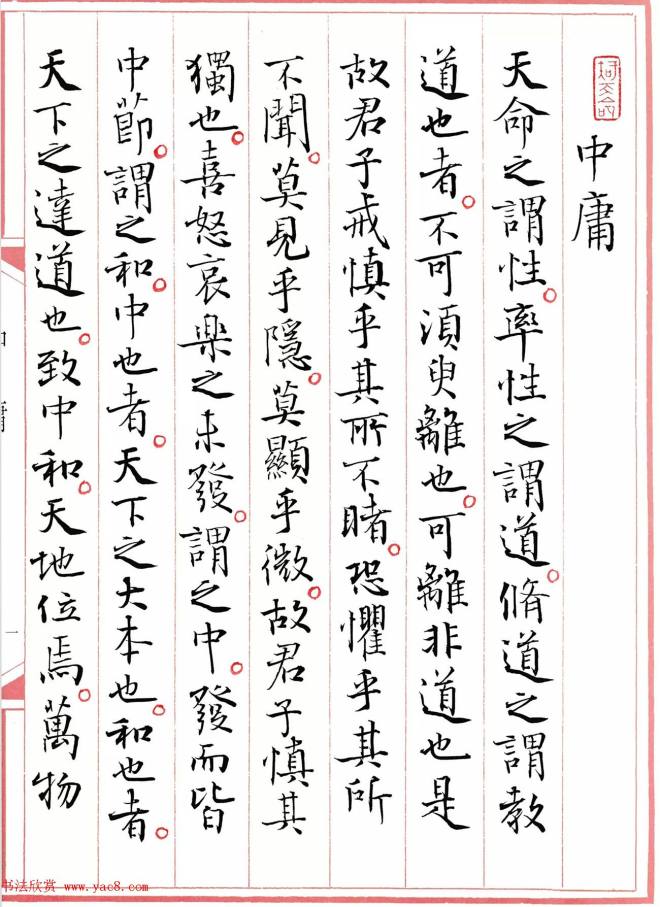 中庸
天命之謂性。率性之謂道。脩道之謂教
道也者。不可須臾離也。可離非道也是
故君子戒慎乎其所不睹。恐懼乎其所
不聞。莫見乎隱。莫顯乎微。故君子慎其
獨也。喜怒哀樂之未發。謂之中。發而皆
中節。謂之和。中也者。天下之大本也。和也者。
天下之達道也。致中和。天地位焉。萬物
中庸
一
书法欣赏 www.yac8.com